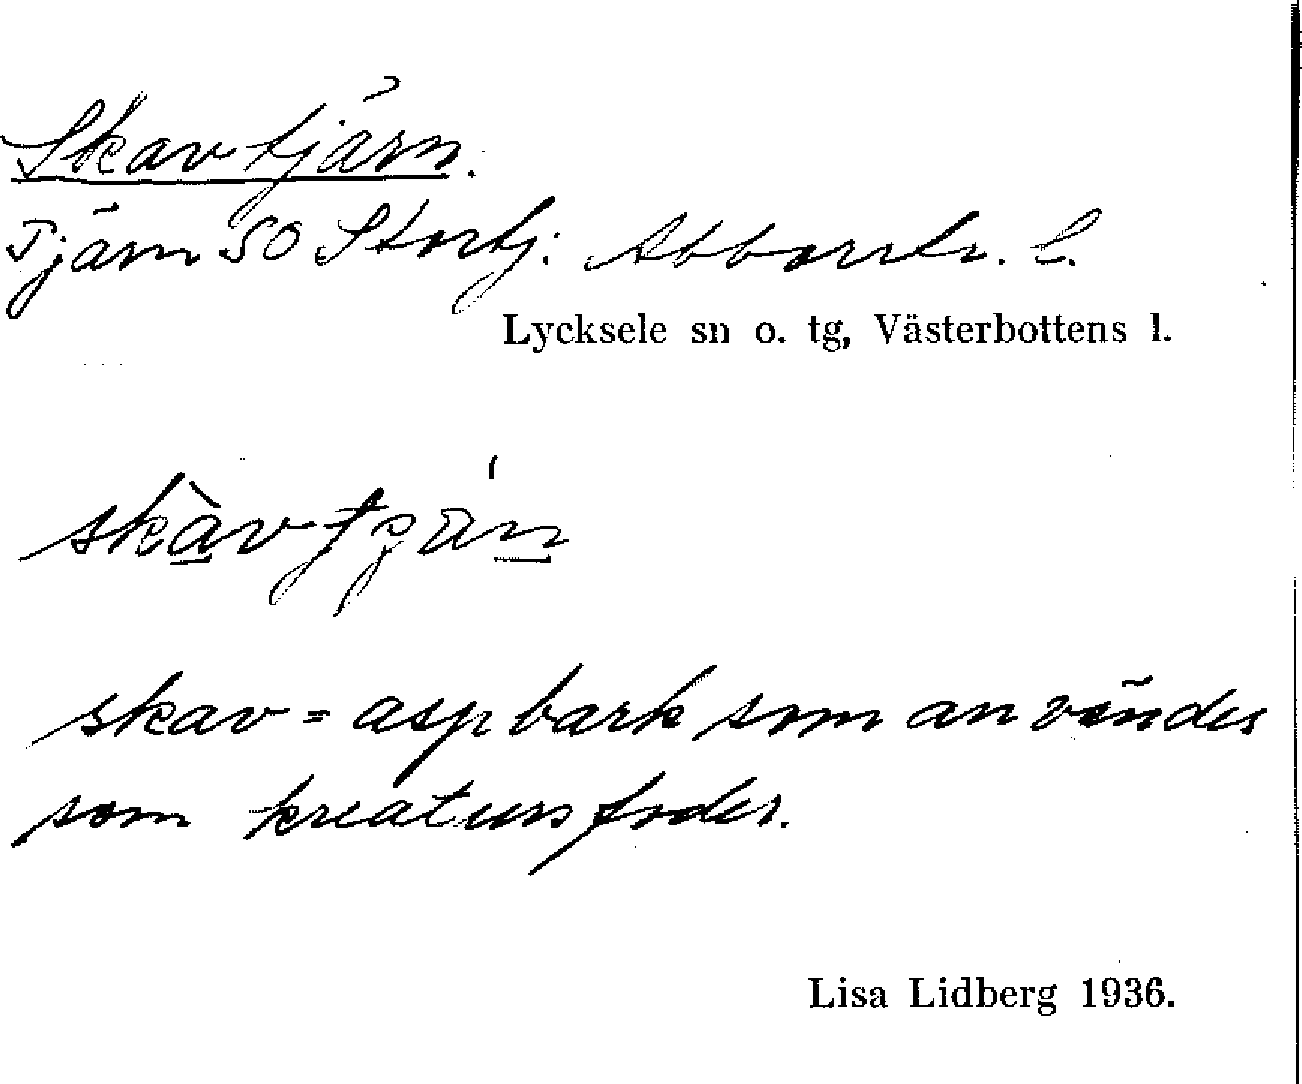 Skavtjärn.
Tjärn SO Stortj: Abborrtr. L.
Lycksele sn o. tg, Västerbottens l.
skav = aspbark som användes
som kreatursfoder.
Lisa Lidberg 1936.